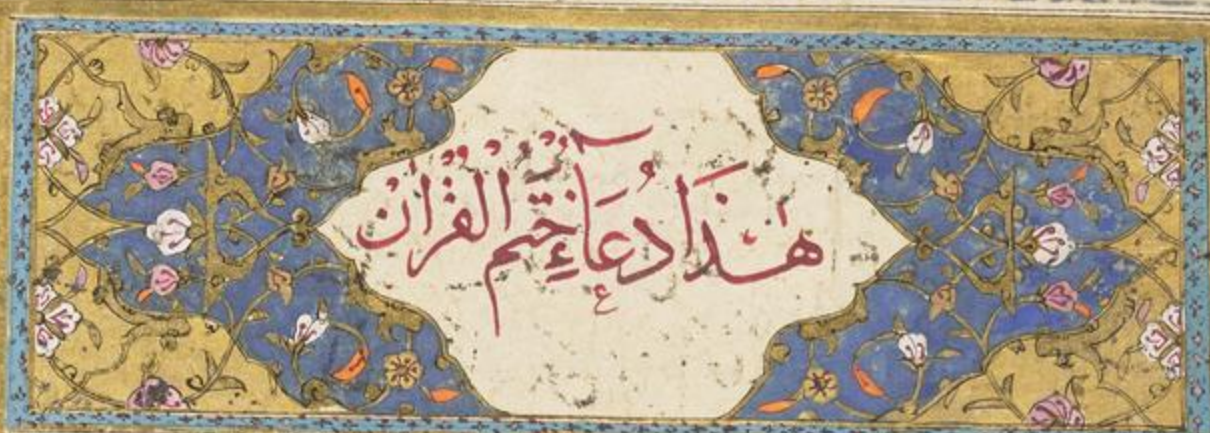 هٰذَا دُعَآءِ خَتْمِ الْقُرْاٰنْ